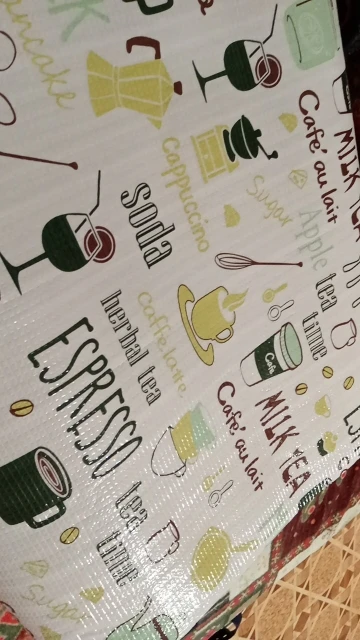 ancake
Café au lait
MILK TEA
Cappuccino
Sugar
soda
Apple
tea
time
herbal tea
Caffe latte
ESPRESSO
Café
Café au lait
MILK TEA
tea
time
Sugar